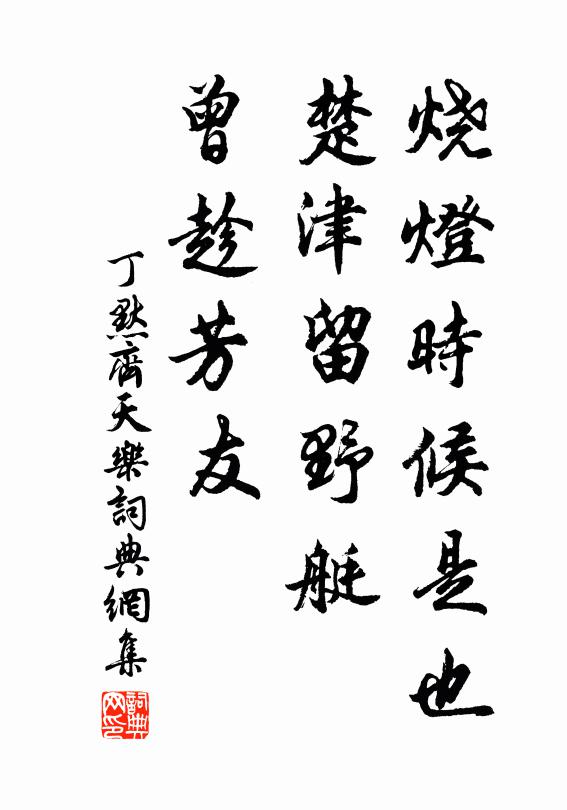 烧燈時候是也
楚津留野艇
曾趁芳友
丁默齊天樂詞典網集
詞典网印